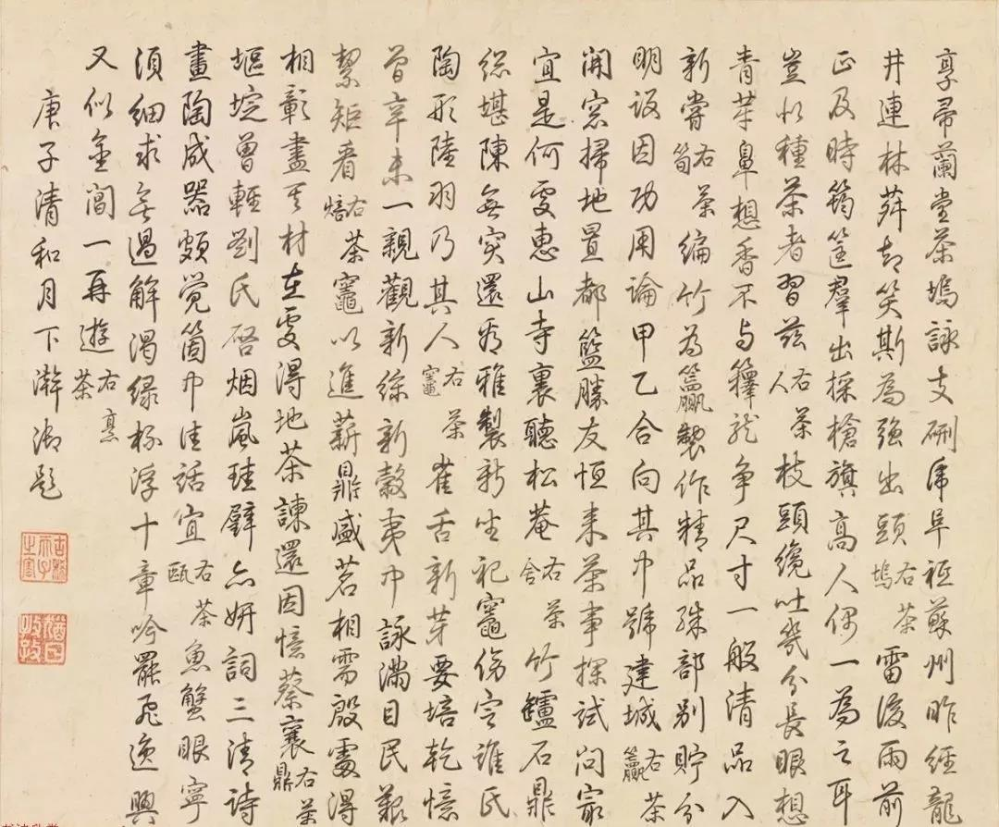 享帚蘭堂茶塢詠支硎虎阜祗蘇州昨經龍
井連林薜却笑斯為強出頭右茶塢雷後雨前
正及時筠筐羣出採槍旗高人偶一為之耳
豈以種茶者習茲右茶人枝頭纔吐幾分長眼想
青芽鼻想香不与籜龍爭尺寸一般清品入
新嘗右茶筍編竹為籯製作精品殊部別貯分
明設因功用論甲乙合向其中號建城右茶籯
開窓掃地置都籃勝友恒来茶事探試问最
宜是何處惠山寺裏聽松菴右茶舍竹罏石鼎
總堪陳無突還看雅製新坐祀竈傍定誰氏
陶形陸羽乃其人右茶竈雀舌新芽要培乾憶
曾辛未一親觀新絲新穀夷中詠滿目民艱
絜矩看右茶焙竈以進薪鼎盛茗相需殷處得
相彰盡其材在處得地茶諫還因憶蔡襄右茶鼎
塸埞曾輕劉氏啓烟嵐珪璧亦妍詞三清詩
畫陶成器頗覺箇中佳話宜右茶甌魚蟹眼寧
須細求無過解渴綠杯浮十章吟罷飛逸興
又似金閶一再遊右烹茶
庚子清和月下澣御題
古稀天子之寶
猶日孜孜